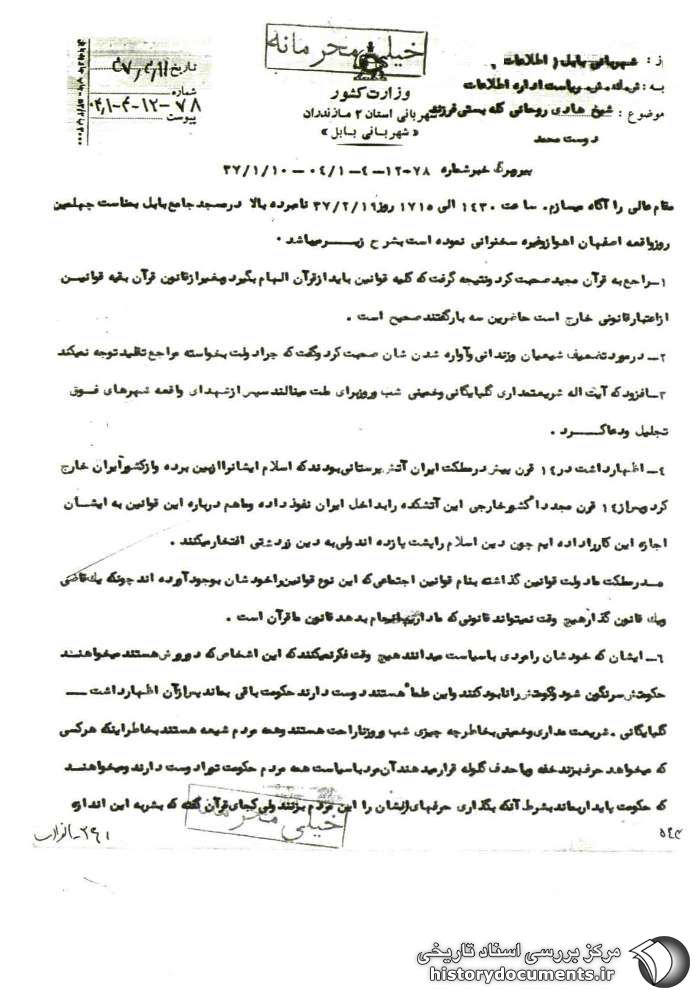 خیلی محرمانه
از : شهربانی بابل ( اطلاعات )
به : ریاست اداره اطلاعات
موضوع : شیخ هادی روحانی گله بستی فرزند
دوست محمد
وزارت کشور
شهربانی استان ۲ مازندران
« شهربانی بابل »
تاریخ
شماره ۰۴/۱-۴-۱۲-۷۸
پیوست
پیرو برگ خبر شماره ۷۸-۱۲-۴-۰۴/۱ - ۳۷/۱/۱۰
مقام عالی را آگاه میسازم . ساعت ۱۴۳۰ الی ۱۷۱۵ روز ۳۷/۲/۱۹ نامبرده بالا در مسجد جامع بابل بمناسبت چهلمین
روز واقعه اصفهان اهواز و غیره سخنرانی نموده است بشرح زیر میباشد .
۱- راجع به قرآن مجید صحبت کرد و نتیجه گرفت که کلیه قوانین باید از قرآن الهام بگیرد و بغیر از قانون قرآن بقیه قوانین
از اعتبار قانونی خارج است حاضرین سه بار گفتند صحیح است .
۲- در مورد تضعیف شیعیان و زندانی و آواره شدن شان صحبت کرد و گفت که چرا دولت بخواسته مراجع تقلید توجه نمیکند
۳- افزود که آیت اله شریعتمداری گلپایگانی و خمینی شب و روز برای ملت مینالند سپس از شهدای واقعه شهرهای فوق
تجلیل و دعا کرد .
۴- اظهار داشت در ۱۴ قرن پیش در مملکت ایران آتش پرستانی بودند که اسلام ایشان را از بین برده و از کشور ایران خارج
کرد و پس از ۱۴ قرن مجددا کشور خارجی این آتشکده را بداخل ایران نفوذ داده و ما هم درباره این قوانین به ایشان
اجازه این کار را داده ایم چون دین اسلام را پشت پا زده اند ولی به دین زردشتی افتخار میکنند .
۵- در مملکت ما دولت قوانین گذاشته بنام قوانین اجتماعی که این نوع قوانین را خودشان بوجود آورده اند چونکه یک قاضی
و یک قانون گذار هیچ وقت نمیتواند قانونی که ما داریم انجام بدهد قانون ما قرآن است .
۶- ایشان که خودشان را مردی با سیاست میدانند هیچ وقت فکر نمیکنند که این اشخاصی که دورورش هستند میخواهند
حکومتش سرنگون شود و گوشش را نابود کنند و این علما هستند دوست دارند حکومت باقی بماند پس از آن اظهار داشت -
گلپایگانی . شریعتمداری و خمینی بخاطر چه چیزی شب و روز ناراحت هستند و همه مردم شیعه هستند بخاطر اینکه هر کسی
که میخواهد حرف بزند خفه و یا هدف گلوله قرار میدهند آن مرد با سیاست همه مردم حکومت تو را دوست دارند و میخواهند
که حکومت پایدار بماند بشرط آنکه بگذاری حرفهای ایشان را این مردم بزنند ولی کجای قرآن گفته که بشر به این اندازه
خیلی محرمانه
مرکز بررسی اسناد تاریخی
historydocuments.ir